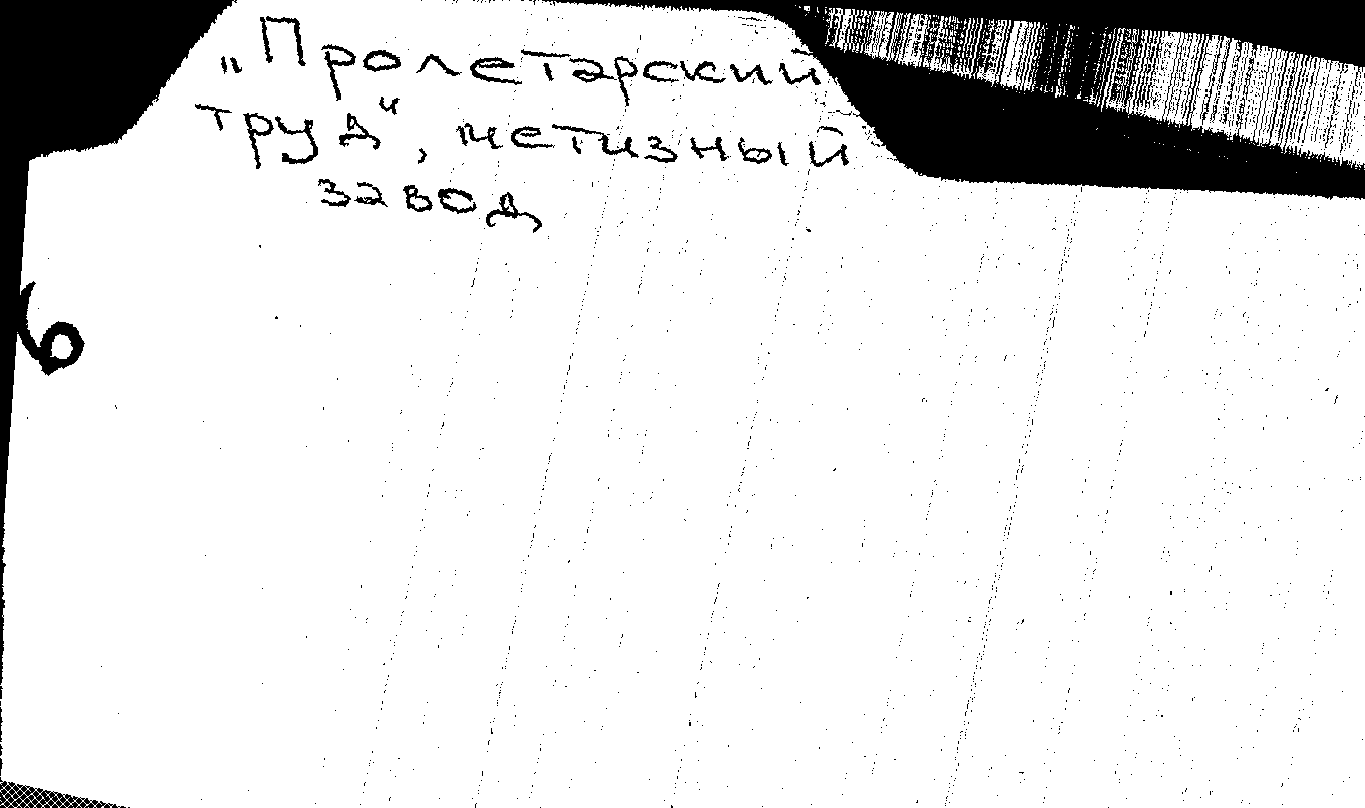 „Пролетарский
труд“, метизный
завод